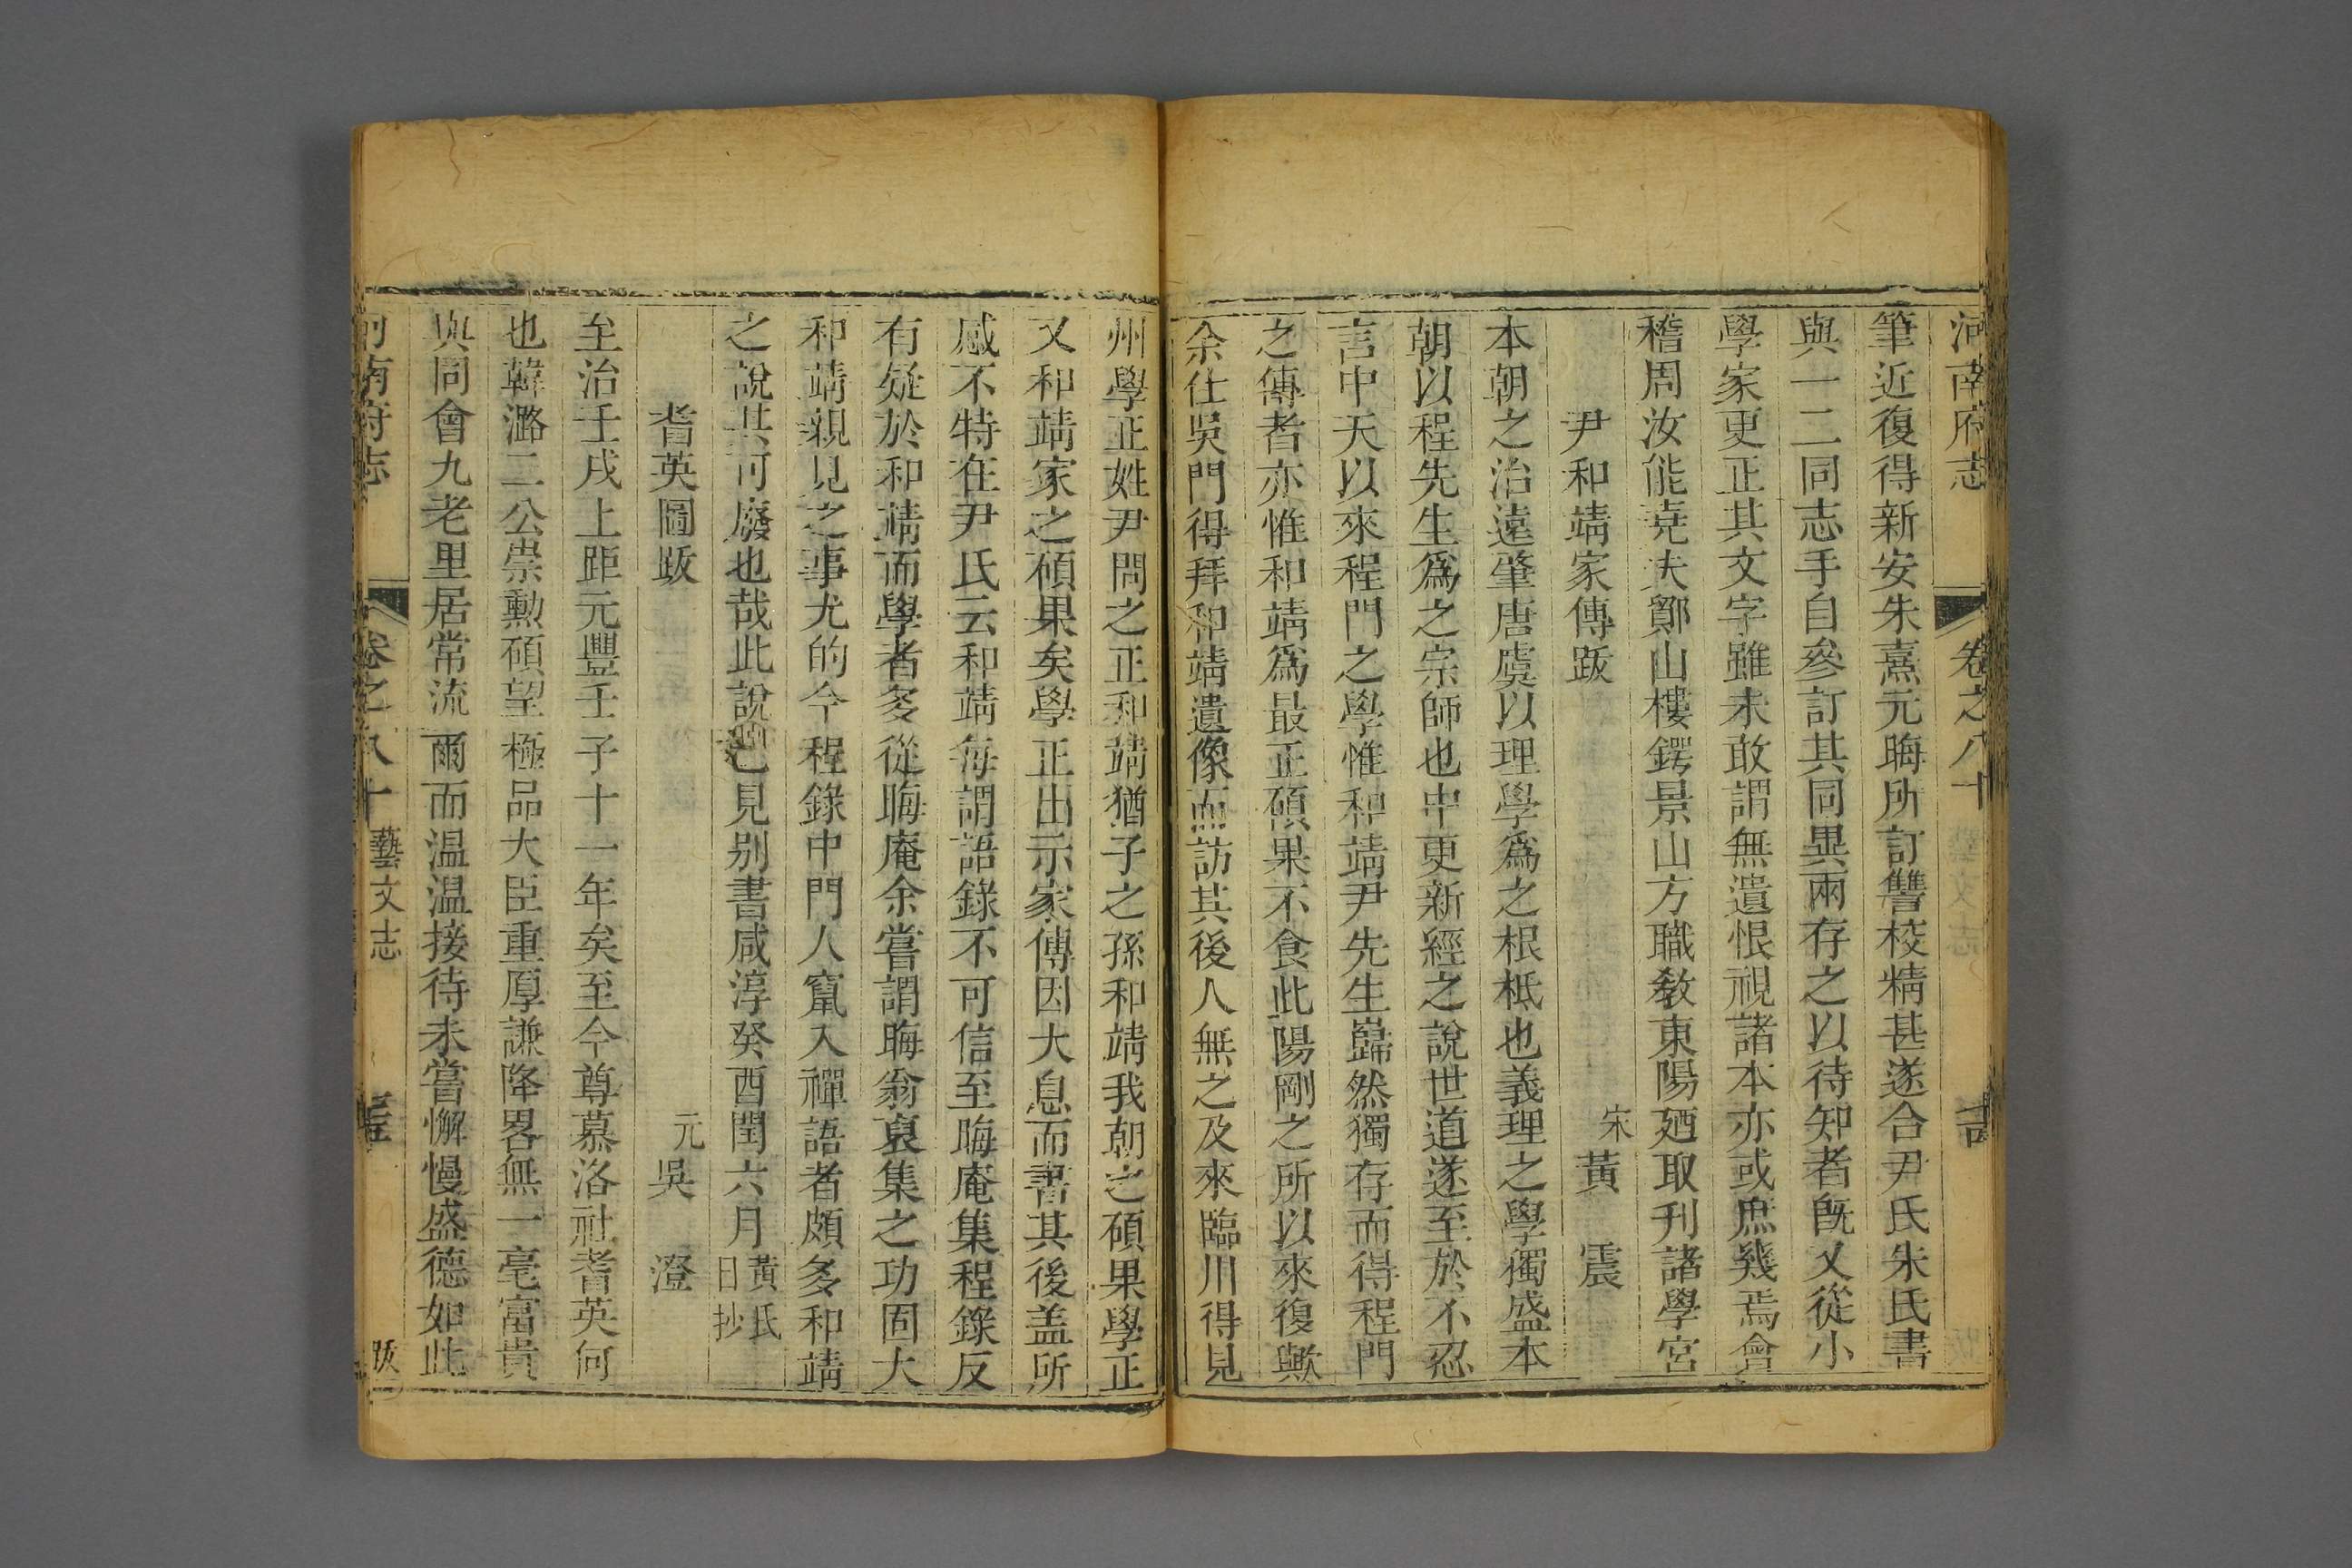 河南府志 卷之八十
筆近復得新安朱熹元晦所訂讐校精甚遂合尹氏朱氏書
與一二同志手自參訂其同異兩存之以待知者旣又從小
學家更正其文字雖未敢謂無遺恨視諸本亦或庶幾焉會
稽周汝能堯夫鄮山樓鍔景山方職教東陽廼取刊諸學宮
尹和靖家傳跋 宋 黃 震
本朝之治遠肇唐虞以理學爲之根柢也義理之學獨盛本
朝以程先生爲之宗師也中更新經之說世道遂至於不忍
言中天以來程門之學惟和靖尹先生巋然獨存而得程門
之傳者亦惟和靖爲最正碩果不食此陽剛之所以來復歟
余仕吳門得拜和靖遺像而訪其後人無之及來臨川得見
州學正姓尹問之正和靖猶子之孫和靖我朝之碩果學正
又和靖家之碩果矣學正出示家傳因大息而書其後盖所
感不特在尹氏云和靖每謂語錄不可信至晦庵集程錄反
有疑於和靖而學者多從晦庵余嘗謂晦翁裒集之功固大
和靖親見之事尤的今程錄中門人竄入禪語者頗多和靖
之說其可廢也哉此說已見别書咸淳癸酉閏六月 黃氏日抄
耆英圖跋 元 吳 澄
至治壬戌上距元豐壬子十一年矣至今尊慕洛社耆英何
也韓潞二公崇勳碩望極品大臣重厚謙降畧無一毫富貴
與同會九老里居常流爾而温温接待未嘗懈慢盛德如此
河南府志 卷之八十 藝文志 跋